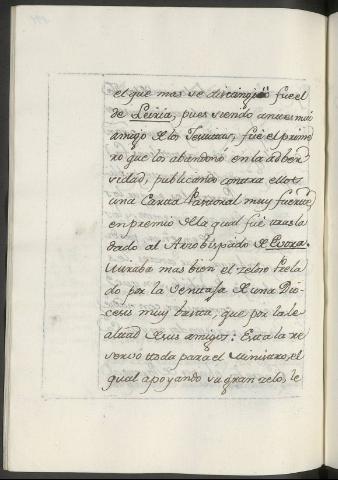 el que mas se distinguió fue el
de Leiria, pues siendo antes mui
amigo de los Jesuitas, fué el prime
ro que los abandonó en la adver
sidad, publicando contra ellos
una Carta Pastoral muy fuerte,
en premio de la qual fué trasla
dado al Arzobispado de Evora.
Miraba mas bien el zeloso Prela
do por la ventaja de una Dio
cesis muy brica, que por la le
altad de sus amigos: Esta la re
servó toda para el Ministro, el
qual apoyando su gran zelo, le